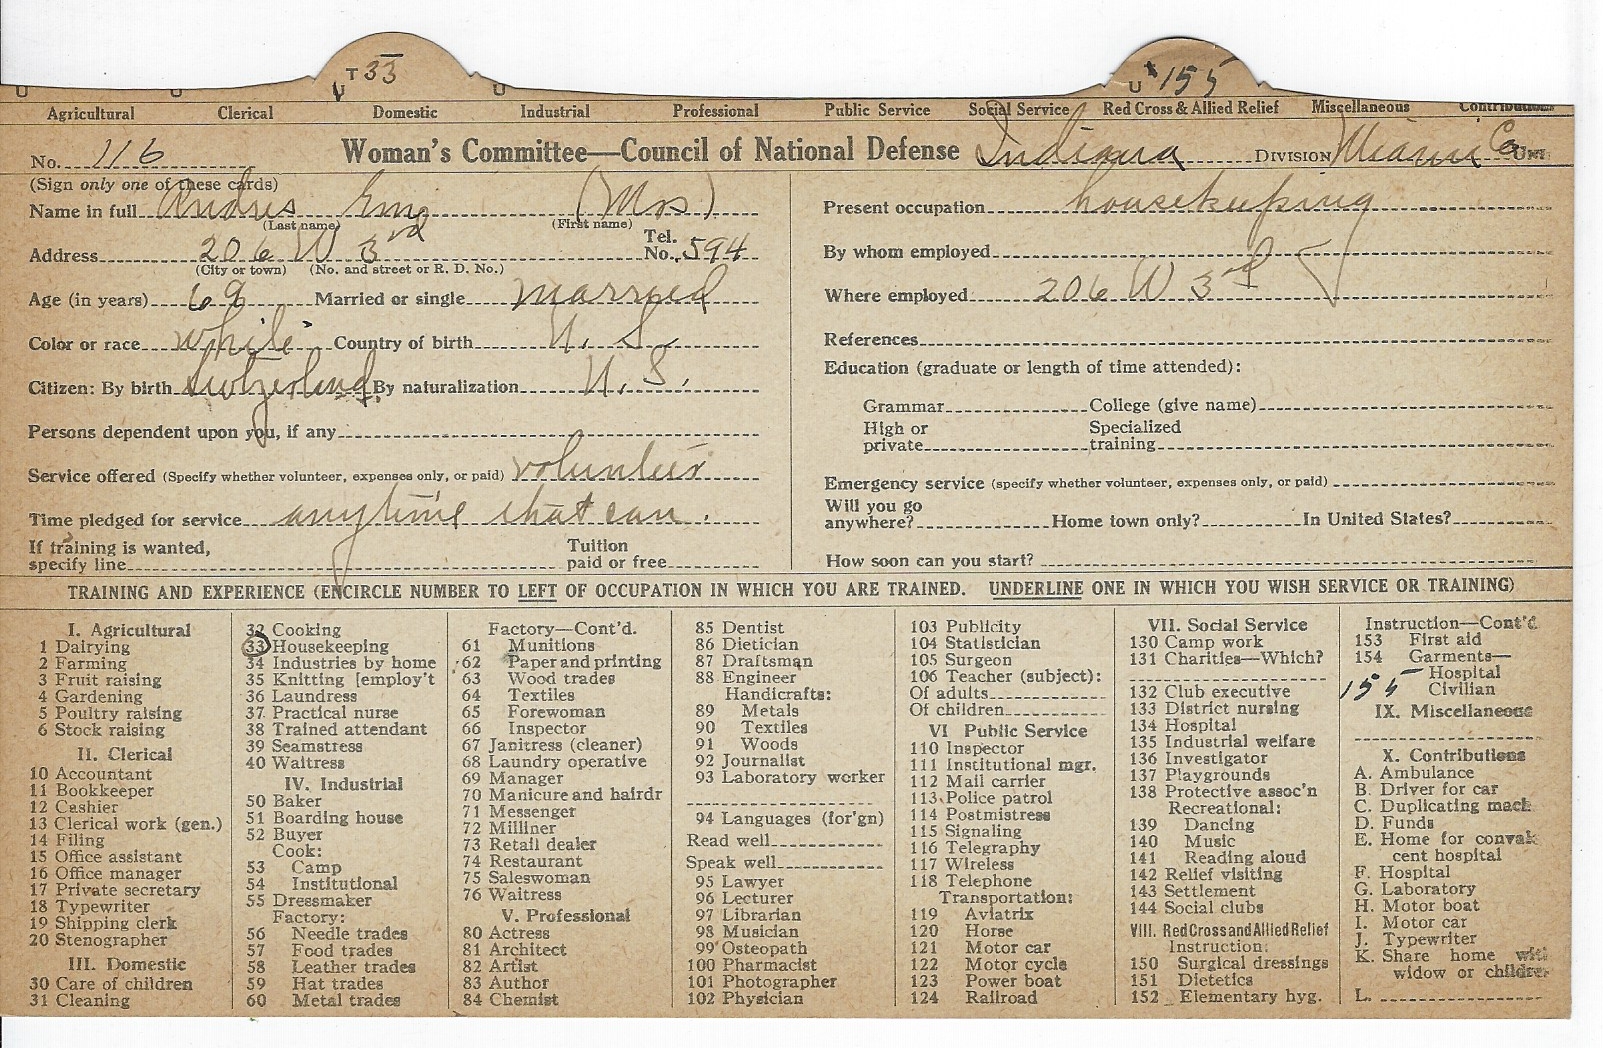 T 33
U 155
Agricultural Clerical Domestic Industrial Professional Public Service Social Service Red Cross & Allied Relief Miscellaneous Contributions
No. 116 Woman's Committee—Council of National Defense Indiana DIVISION Miami Co UNIT
(Sign only one of these cards)
Name in full Andres (Mrs)
(Last name) (First name)
Address 206 W 3rd Tel. No. 594
(City or town) (No. and street or R. D. No.)
Age (in years) 68 Married or single married
Color or race white Country of birth U. S.
Citizen: By birth Switzerland By naturalization U. S.
Persons dependent upon you, if any
Service offered (Specify whether volunteer, expenses only, or paid) volunteer
Time pledged for service anytime that can.
If training is wanted, specify line Tuition paid or free
Present occupation housekeeping
By whom employed
Where employed 206 W 3rd
References
Education (graduate or length of time attended):
Grammar College (give name)
High or private Specialized training
Emergency service (specify whether volunteer, expenses only, or paid)
Will you go anywhere? Home town only? In United States?
How soon can you start?
TRAINING AND EXPERIENCE (ENCIRCLE NUMBER TO LEFT OF OCCUPATION IN WHICH YOU ARE TRAINED. UNDERLINE ONE IN WHICH YOU WISH SERVICE OR TRAINING)
I. Agricultural
1 Dairying
2 Farming
3 Fruit raising
4 Gardening
5 Poultry raising
6 Stock raising
II. Clerical
10 Accountant
11 Bookkeeper
12 Cashier
13 Clerical work (gen.)
14 Filing
15 Office assistant
16 Office manager
17 Private secretary
18 Typewriter
19 Shipping clerk
20 Stenographer
III. Domestic
30 Care of children
31 Cleaning
32 Cooking
33 Housekeeping
34 Industries by home
35 Knitting [employ't
36 Laundress
37 Practical nurse
38 Trained attendant
39 Seamstress
40 Waitress
IV. Industrial
50 Baker
51 Boarding house
52 Buyer
Cook:
53 Camp
54 Institutional
55 Dressmaker
Factory:
56 Needle trades
57 Food trades
58 Leather trades
59 Hat trades
60 Metal trades
Factory—Cont'd.
61 Munitions
62 Paper and printing
63 Wood trades
64 Textiles
65 Forewoman
66 Inspector
67 Janitress (cleaner)
68 Laundry operative
69 Manager
70 Manicure and hairdr
71 Messenger
72 Milliner
73 Retail dealer
74 Restaurant
75 Saleswoman
76 Waitress
V. Professional
80 Actress
81 Architect
82 Artist
83 Author
84 Chemist
85 Dentist
86 Dietician
87 Draftsman
88 Engineer
Handicrafts:
89 Metals
90 Textiles
91 Woods
92 Journalist
93 Laboratory worker
94 Languages (for'gn)
Read well
Speak well
95 Lawyer
96 Lecturer
97 Librarian
98 Musician
99 Osteopath
100 Pharmacist
101 Photographer
102 Physician
103 Publicity
104 Statistician
105 Surgeon
106 Teacher (subject):
Of adults
Of children
VI Public Service
110 Inspector
111 Institutional mgr.
112 Mail carrier
113 Police patrol
114 Postmistress
115 Signaling
116 Telegraphy
117 Wireless
118 Telephone
Transportation:
119 Aviatrix
120 Horse
121 Motor car
122 Motor cycle
123 Power boat
124 Railroad
VII. Social Service
130 Camp work
131 Charities—Which?
132 Club executive
133 District nursing
134 Hospital
135 Industrial welfare
136 Investigator
137 Playgrounds
138 Protective assoc'n
Recreational:
139 Dancing
140 Music
141 Reading aloud
142 Relief visiting
143 Settlement
144 Social clubs
VIII. Red Cross and Allied Relief
Instruction:
150 Surgical dressings
151 Dietetics
152 Elementary hyg.
Instruction—Cont'd
153 First aid
154 Garments—
Hospital
155 Civilian
IX. Miscellaneous
X. Contributions
A. Ambulance
B. Driver for car
C. Duplicating mach.
D. Funds
E. Home for convales
cent hospital
F. Hospital
G. Laboratory
H. Motor boat
I. Motor car
J. Typewriter
K. Share home with
widow or children
L.